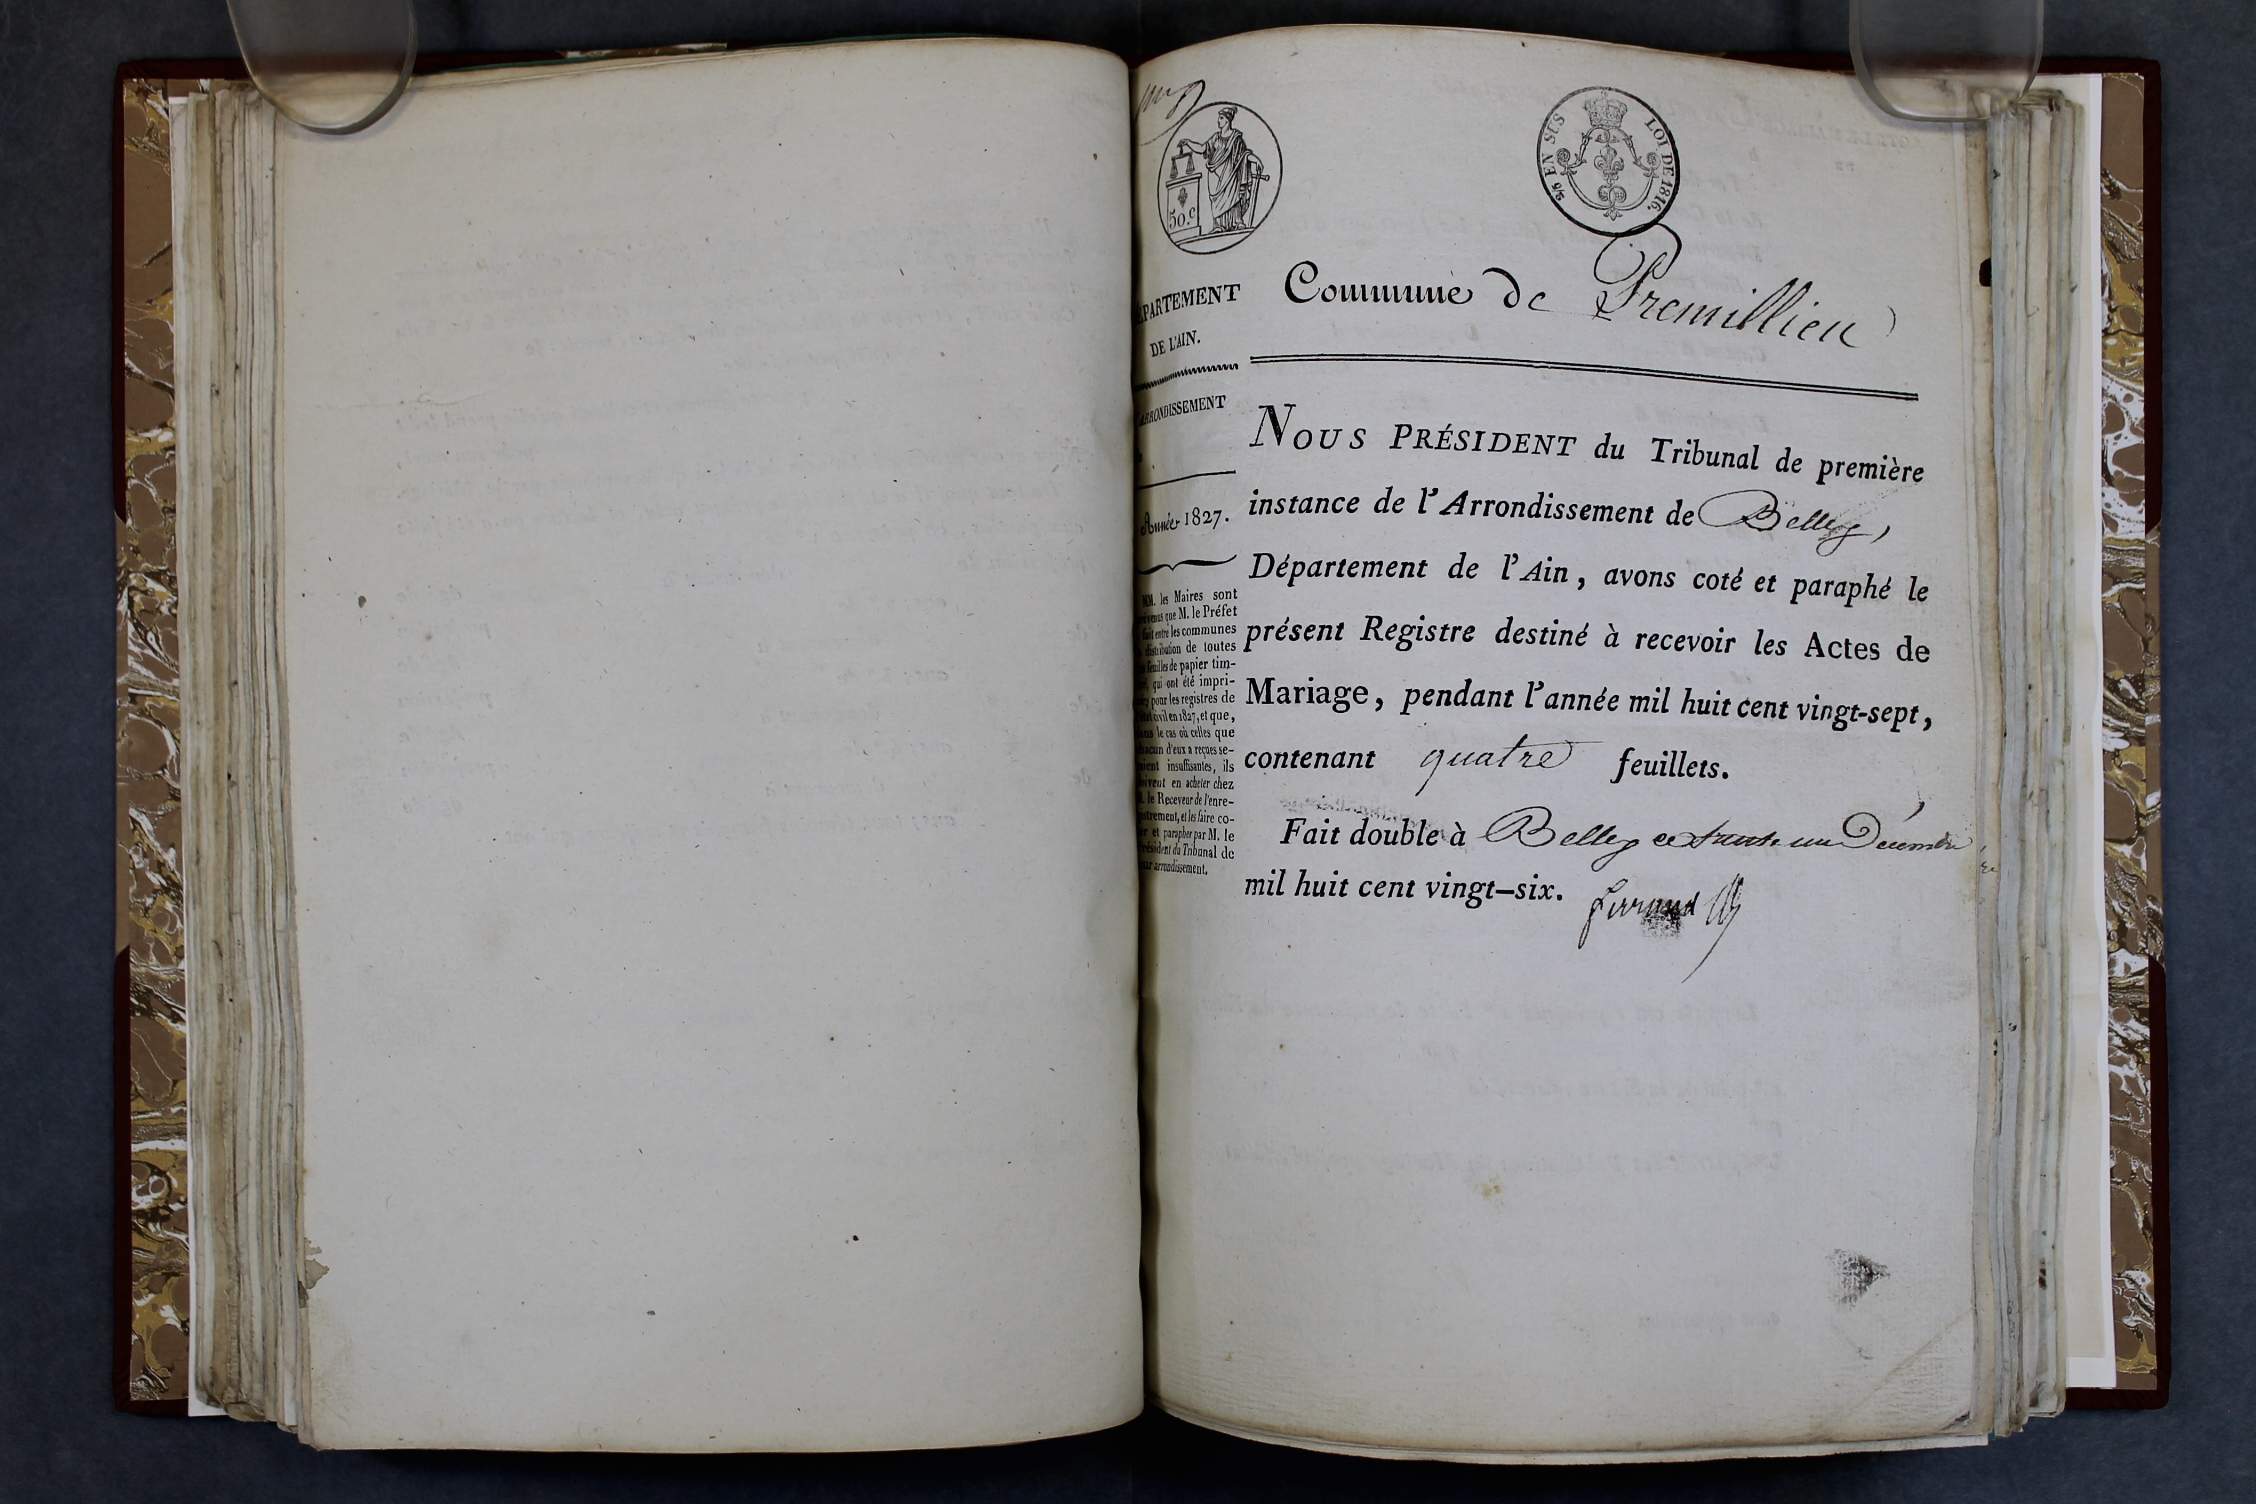 50.c
2/5 EN SUS LOI DE 1816.
DÉPARTEMENT
DE L'AIN.
ARRONDISSEMENT
Année 1827.
MM. les Maires sont
prévenus que M. le Préfet
fait entre les communes
la distribution de toutes
les feuilles de papier tim-
qui ont été impri-
pour les registres de
civil en 1827, et que,
dans le cas où celles que
chacun d'eux a reçues se-
raient insuffisantes, ils
doivent en acheter chez
M. le Receveur de l'enre-
gistrement, et les faire co-
ter et parapher par M. le
Président du Tribunal de
leur arrondissement.
Commune de Premillieu
NOUS PRÉSIDENT du Tribunal de première
instance de l'Arrondissement de Belley,
Département de l'Ain, avons coté et paraphé le
présent Registre destiné à recevoir les Actes de
Mariage, pendant l'année mil huit cent vingt-sept,
contenant quatre feuillets.
Fait double à Belley ce trente un Décembre
mil huit cent vingt-six.